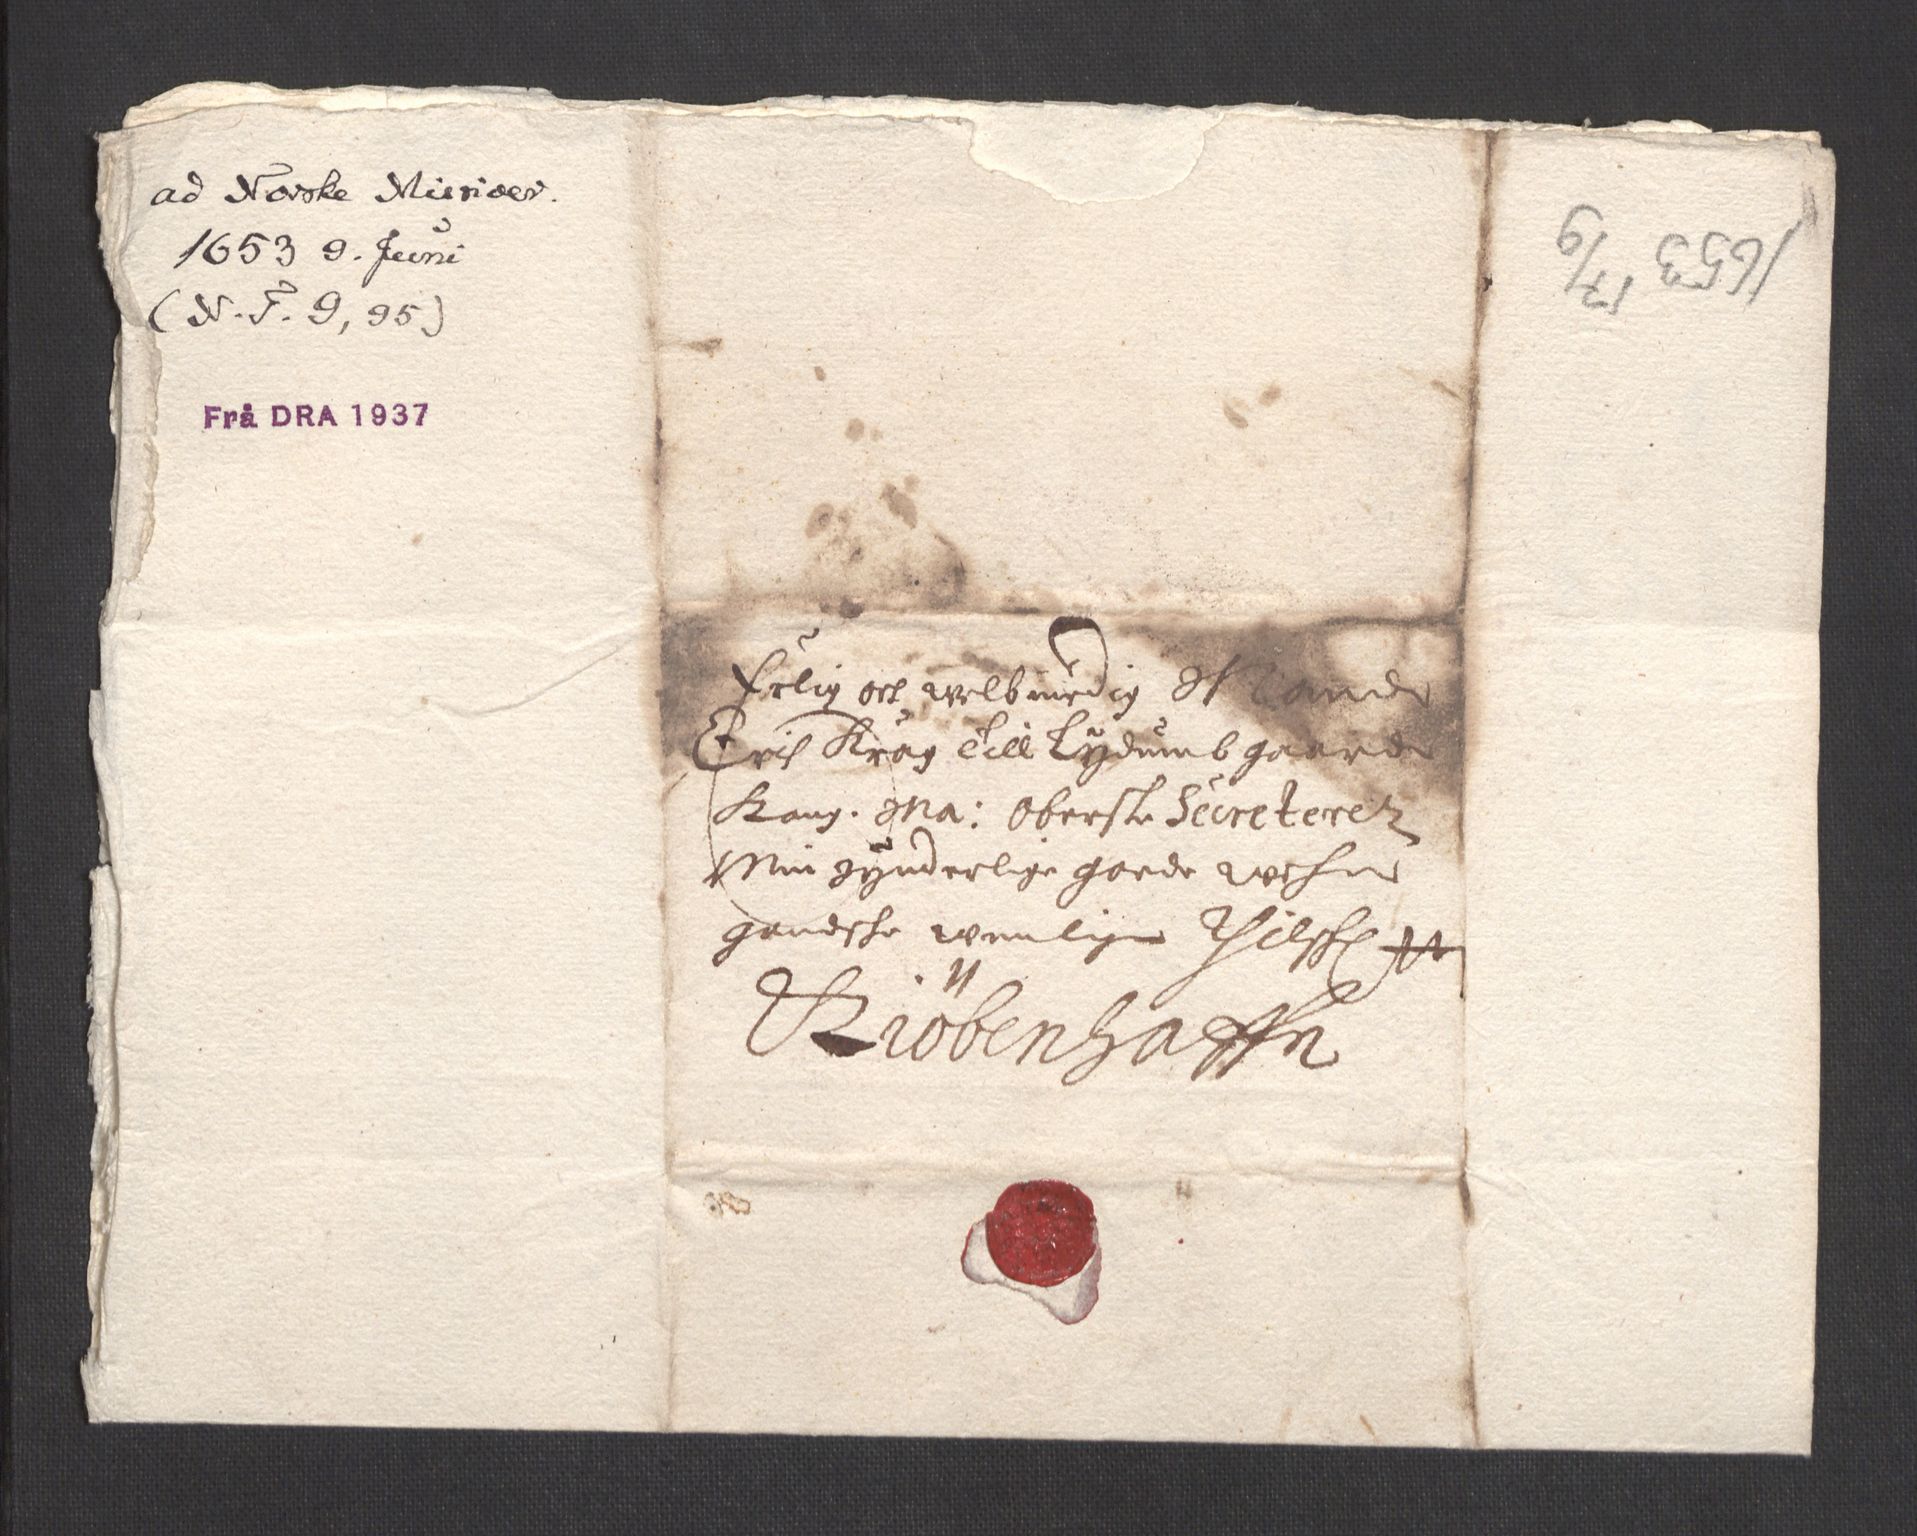 ad Norske Missiver.
1653 9. Juni
(N. T. 9, 95)
Frå DRA 1937
1653 17/9
Erlig och welbiurdig Mand
Erich Krag till Lydumbgaardt
Kong. Ma: Oberste Secreterer
Min synderlige goede wehn
gandsche wenligen Thilsch
Kiöbenhaffn